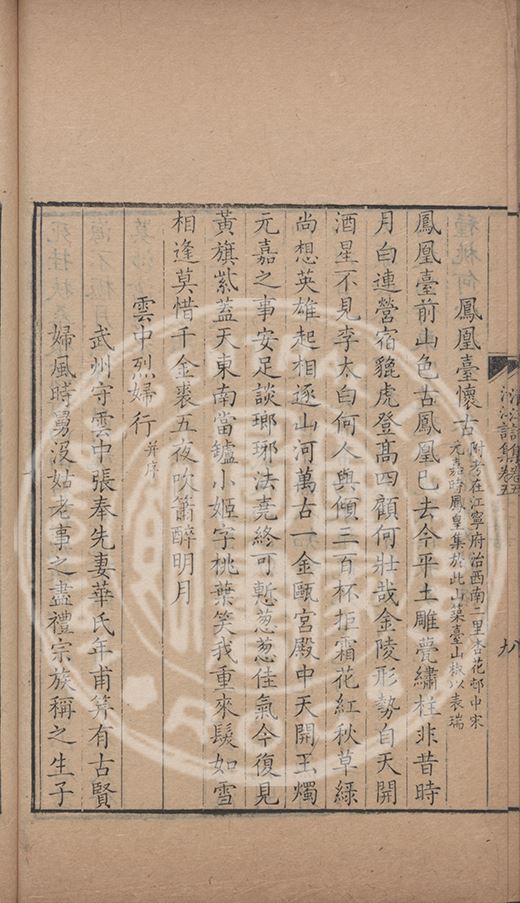 鳳凰臺懷古 附考在江寧府治西南二里杏花邨中宋
元嘉時鳳皇集於此山築臺山椒以表瑞
鳳凰臺前山色古鳳凰已去今平土雕甍繡柱非昔時
月白連營宿貔虎登高四顧何壯哉金陵形勢自天開
酒星不見李太白何人與傾三百杯拒霜花紅秋草綠
尚想英雄起相逐山河萬古一金甌宮殿中天開玉燭
元嘉之事安足談瑯琊法堯終可慙葱葱佳氣今復見
黃旗紫蓋天東南當鑪小姬字桃葉笑我重來鬢如雪
相逢莫惜千金裘五夜吹簫醉明月
雲中烈婦行 并序
武州守雲中張奉先妻華氏年甫笄有古賢
婦風時舅沒姑老事之盡禮宗族稱之生子